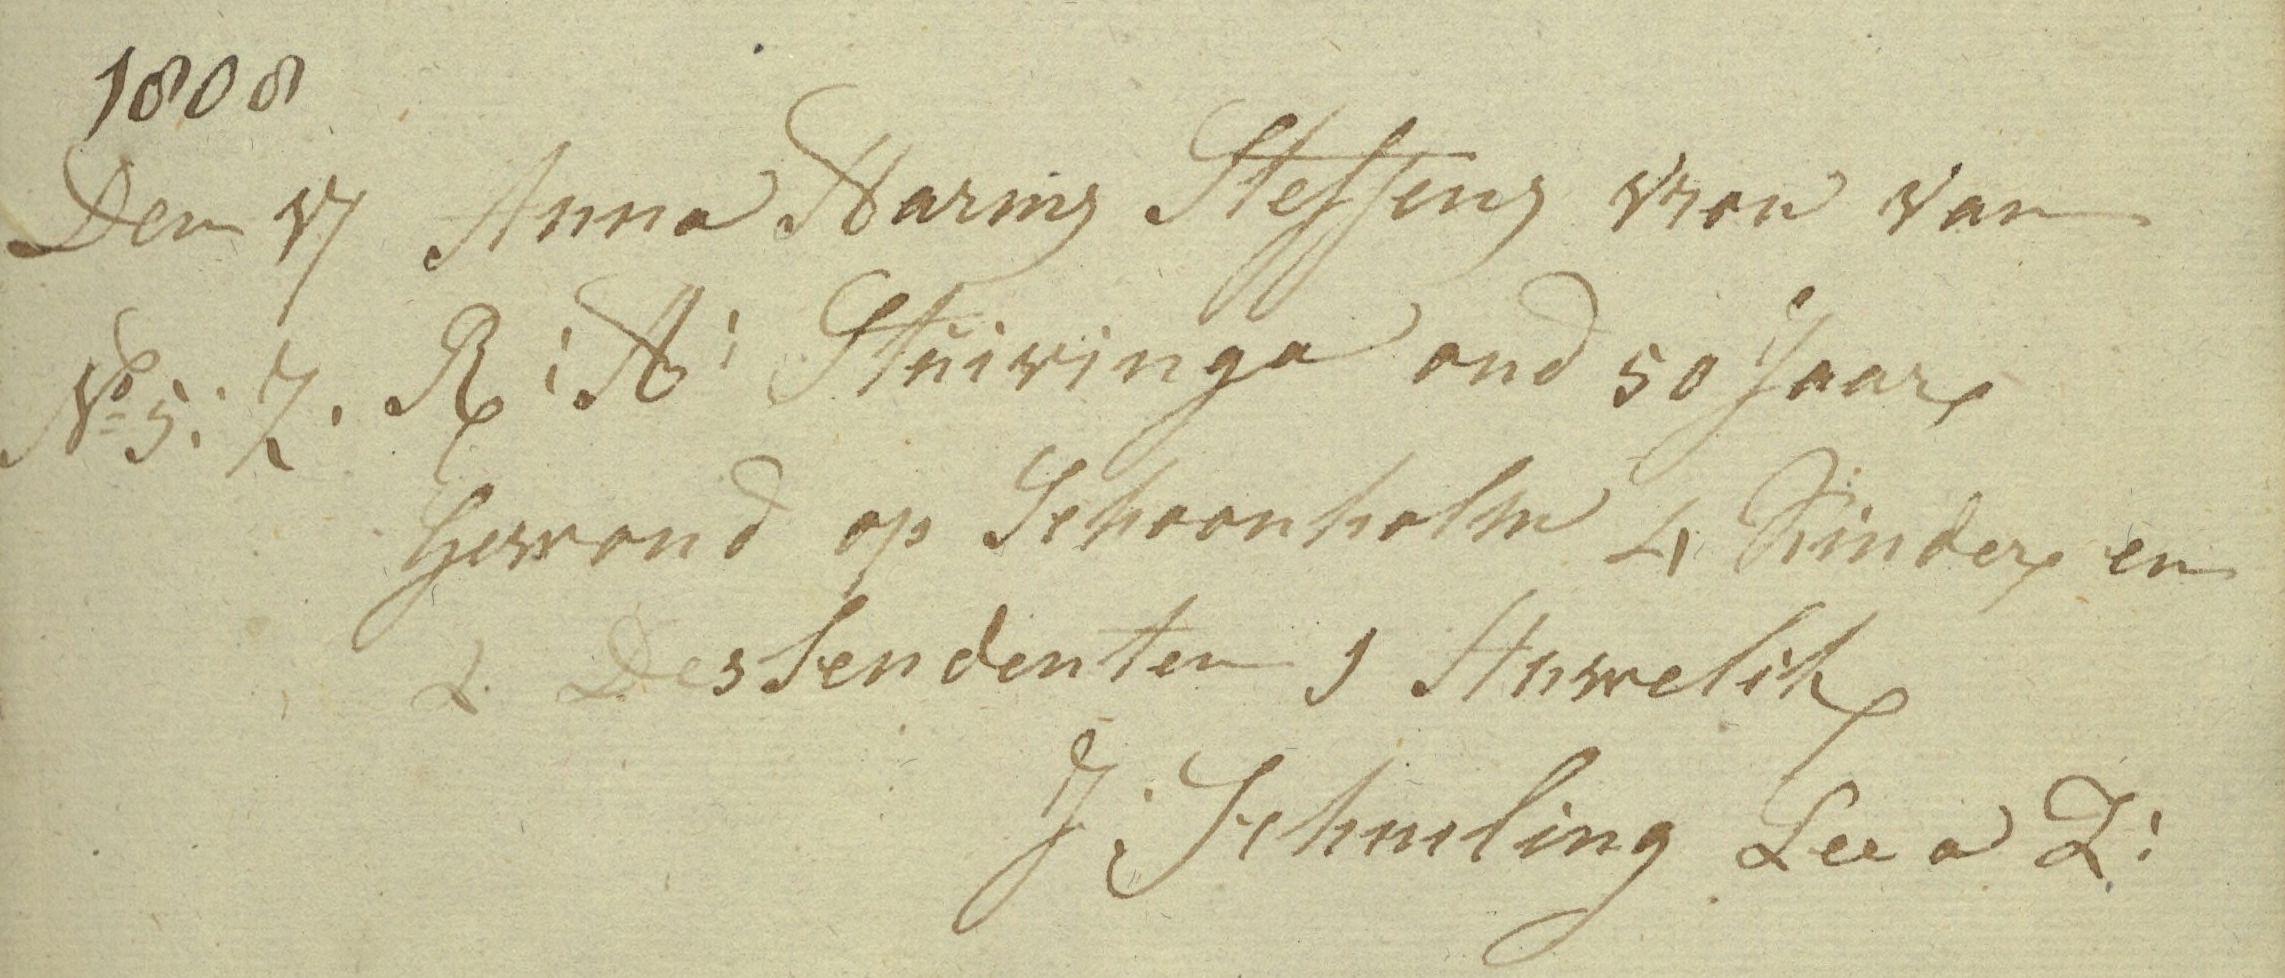 1808
Den 17 Anna Harms Steffens vrou van
No 5: 7. R: H: Stuivinga oud 50 Jaar
Gewond op Schoonholm 4 Kinder en
2 Dessendenten 1 Huwelik
J: Schuiling